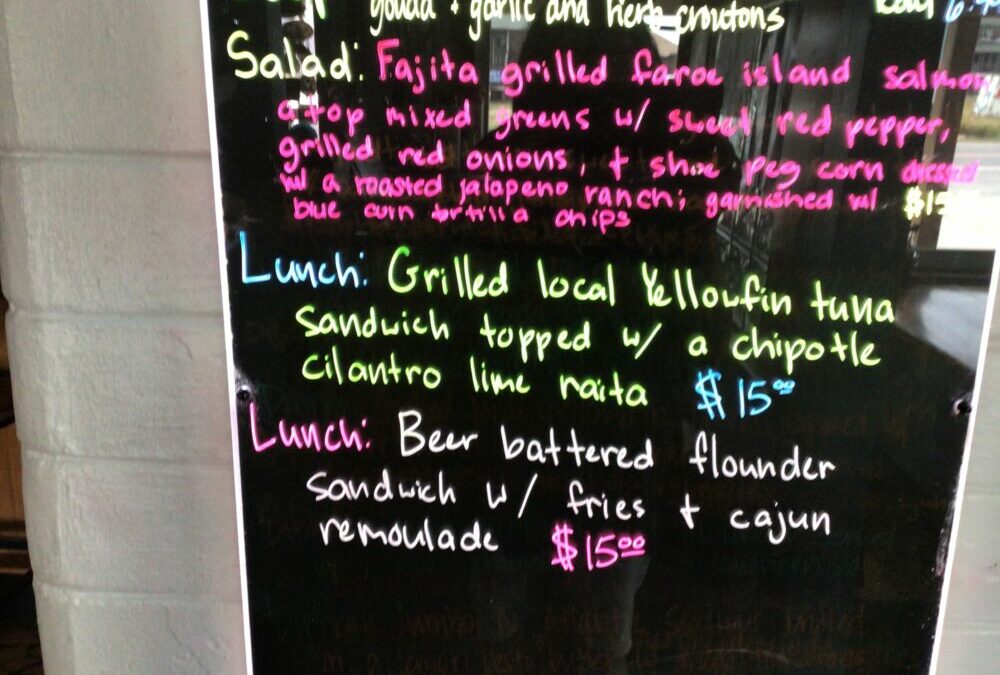 gouda + garlic and herb croutons
Salad: Fajita grilled faroe island salmon
atop mixed greens w/ sweet red pepper,
grilled red onions, + shoe peg corn dressed
w/ a roasted jalapeno ranch; garnished w/ $15
blue corn tortilla chips
Lunch: Grilled local Yellowfin tuna
sandwich topped w/ a chipotle
cilantro lime raita $15⁰⁰
Lunch: Beer battered flounder
sandwich w/ fries + cajun
remoulade $15⁰⁰